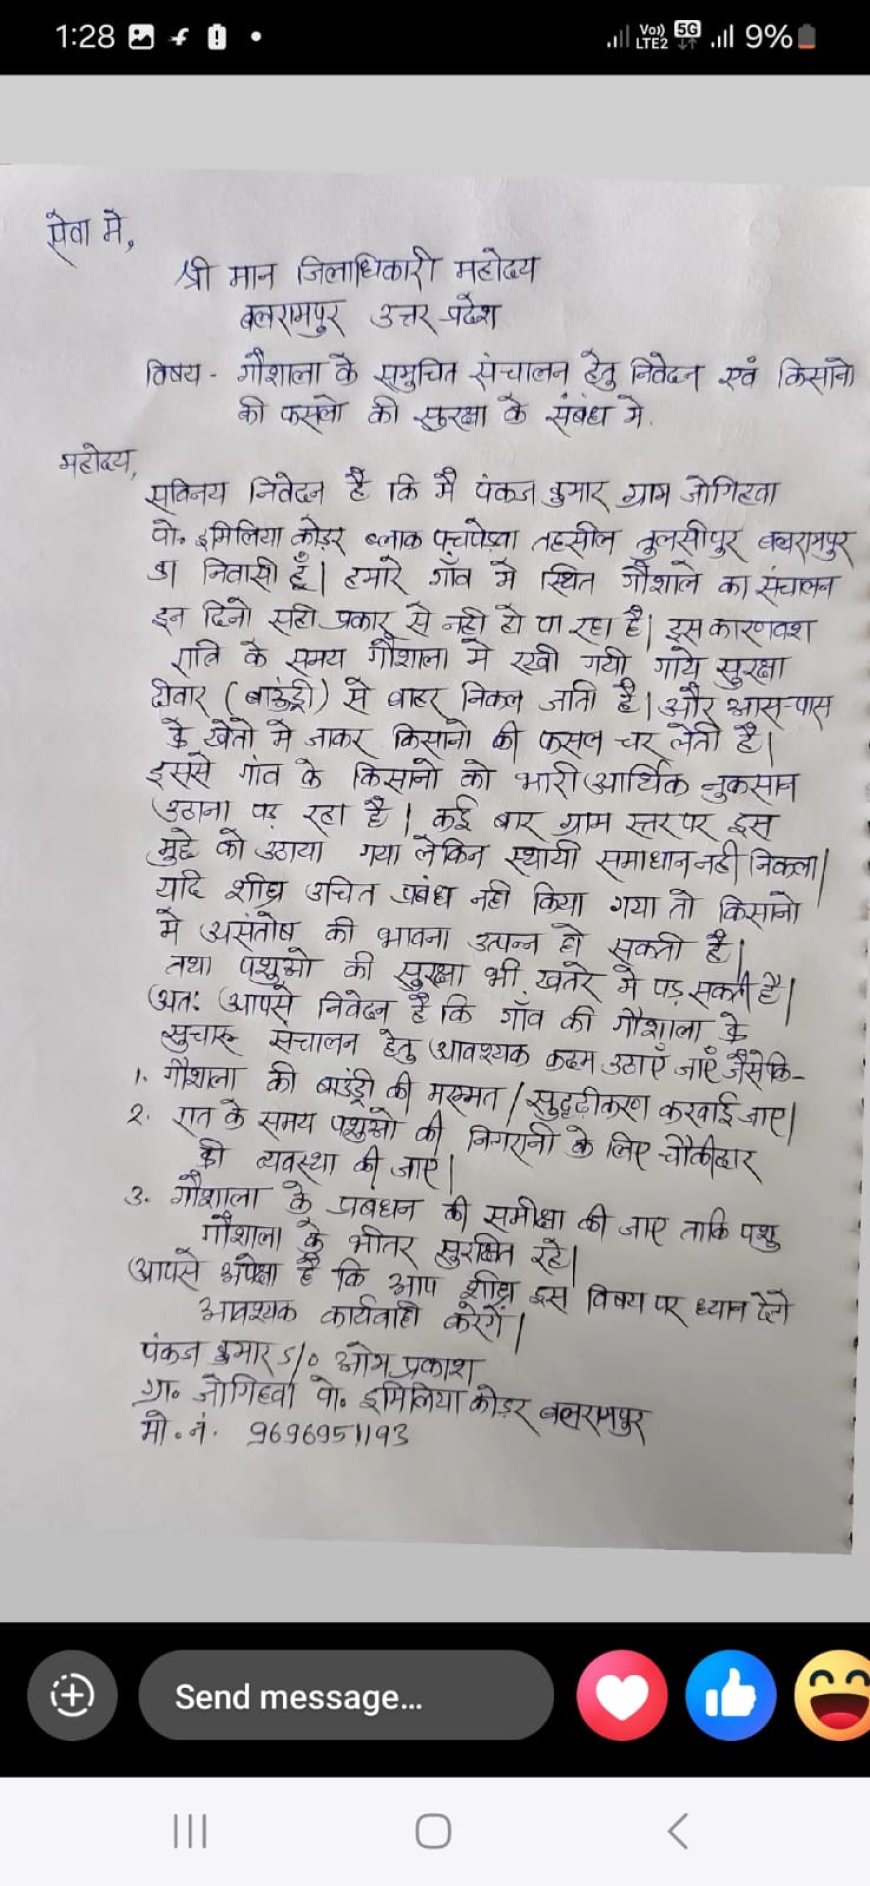 1:28
Vo)) LTE2 5G 9%
सेवा मे,
श्री मान जिलाधिकारी महोदय
बलरामपुर उत्तर प्रदेश
विषय - गौशाला के समुचित संचालन हेतु निवेदन एवं किसानो
की फसलो की सुरक्षा के संबंध मे.
महोदय,
सविनय निवेदन है कि मै पंकज कुमार ग्राम जोगिहवा
पो. इमिलिया कोड़र ब्लाक पचपेड़वा तहसील तुलसीपुर बलरामपुर
का निवासी हूँ। हमारे गाँव मे स्थित गौशाले का संचालन
इन दिनो सही प्रकार से नही हो पा रहा है। इस कारणवश
रात्रि के समय गौशाला मे रखी गयी गाये सुरक्षा
दीवार (बाउंड्री) से बाहर निकल जाती है। और आस-पास
के खेतो मे जाकर किसानो की फसल चर लेती है।
इससे गांव के किसानो को भारी आर्थिक नुकसान
उठाना पड़ रहा है। कई बार ग्राम स्तर पर इस
मुद्दे को उठाया गया लेकिन स्थायी समाधान नही निकला।
यदि शीघ्र उचित प्रबंध नही किया गया तो किसानो
मे असंतोष की भावना उत्पन्न हो सकती है।
तथा पशुओ की सुरक्षा भी खतरे मे पड़ सकती है।
अतः आपसे निवेदन है कि गाँव की गौशाला के
सुचारू संचालन हेतु आवश्यक कदम उठाएँ जाएँ जैसेकि-
1. गौशाला की बाउंड्री की मरम्मत / सुदृढ़ीकरण करवाई जाए।
2. रात के समय पशुओ की निगरानी के लिए चौकीदार
की व्यवस्था की जाए।
3. गौशाला के प्रबधन की समीक्षा की जाए ताकि पशु
गौशाला के भीतर सुरक्षित रहे।
आपसे अपेक्षा है कि आप शीघ्र इस विषय पर ध्यान देंगे
आवश्यक कार्यवाही करेगें।
पंकज कुमार S/o ओम प्रकाश
ग्रा. जोगिहवा पो. इमिलिया कोड़र बलरामपुर
मो. नं. 9696951193
Send message...